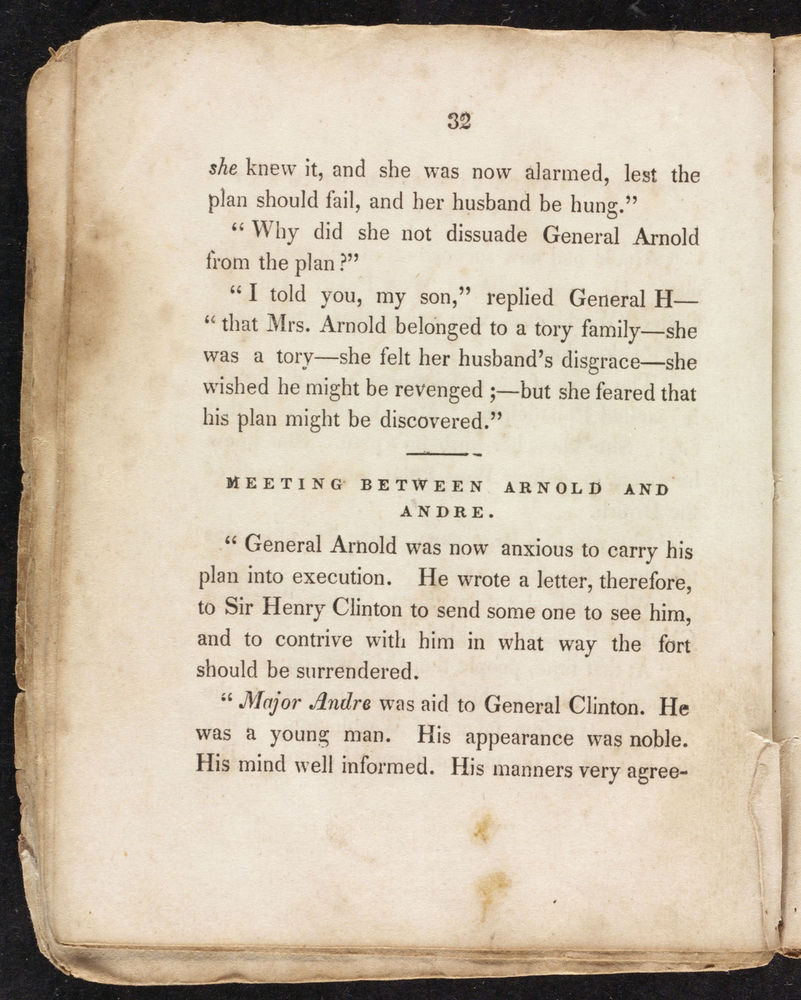 32
she knew it, and she was now alarmed, lest the
plan should fail, and her husband be hung.”
“ Why did she not dissuade General Arnold
from the plan ?”
“ I told you, my son,” replied General H—
“ that Mrs. Arnold belonged to a tory family—she
was a tory—she felt her husband’s disgrace—she
wished he might be revenged ;—but she feared that
his plan might be discovered.”
MEETING BETWEEN ARNOLD AND
ANDRE.
“ General Arnold was now anxious to carry his
plan into execution. He wrote a letter, therefore,
to Sir Henry Clinton to send some one to see him,
and to contrive with him in what way the fort
should be surrendered.
“ Major Andre was aid to General Clinton. He
was a young man. His appearance was noble.
His mind well informed. His manners very agree-